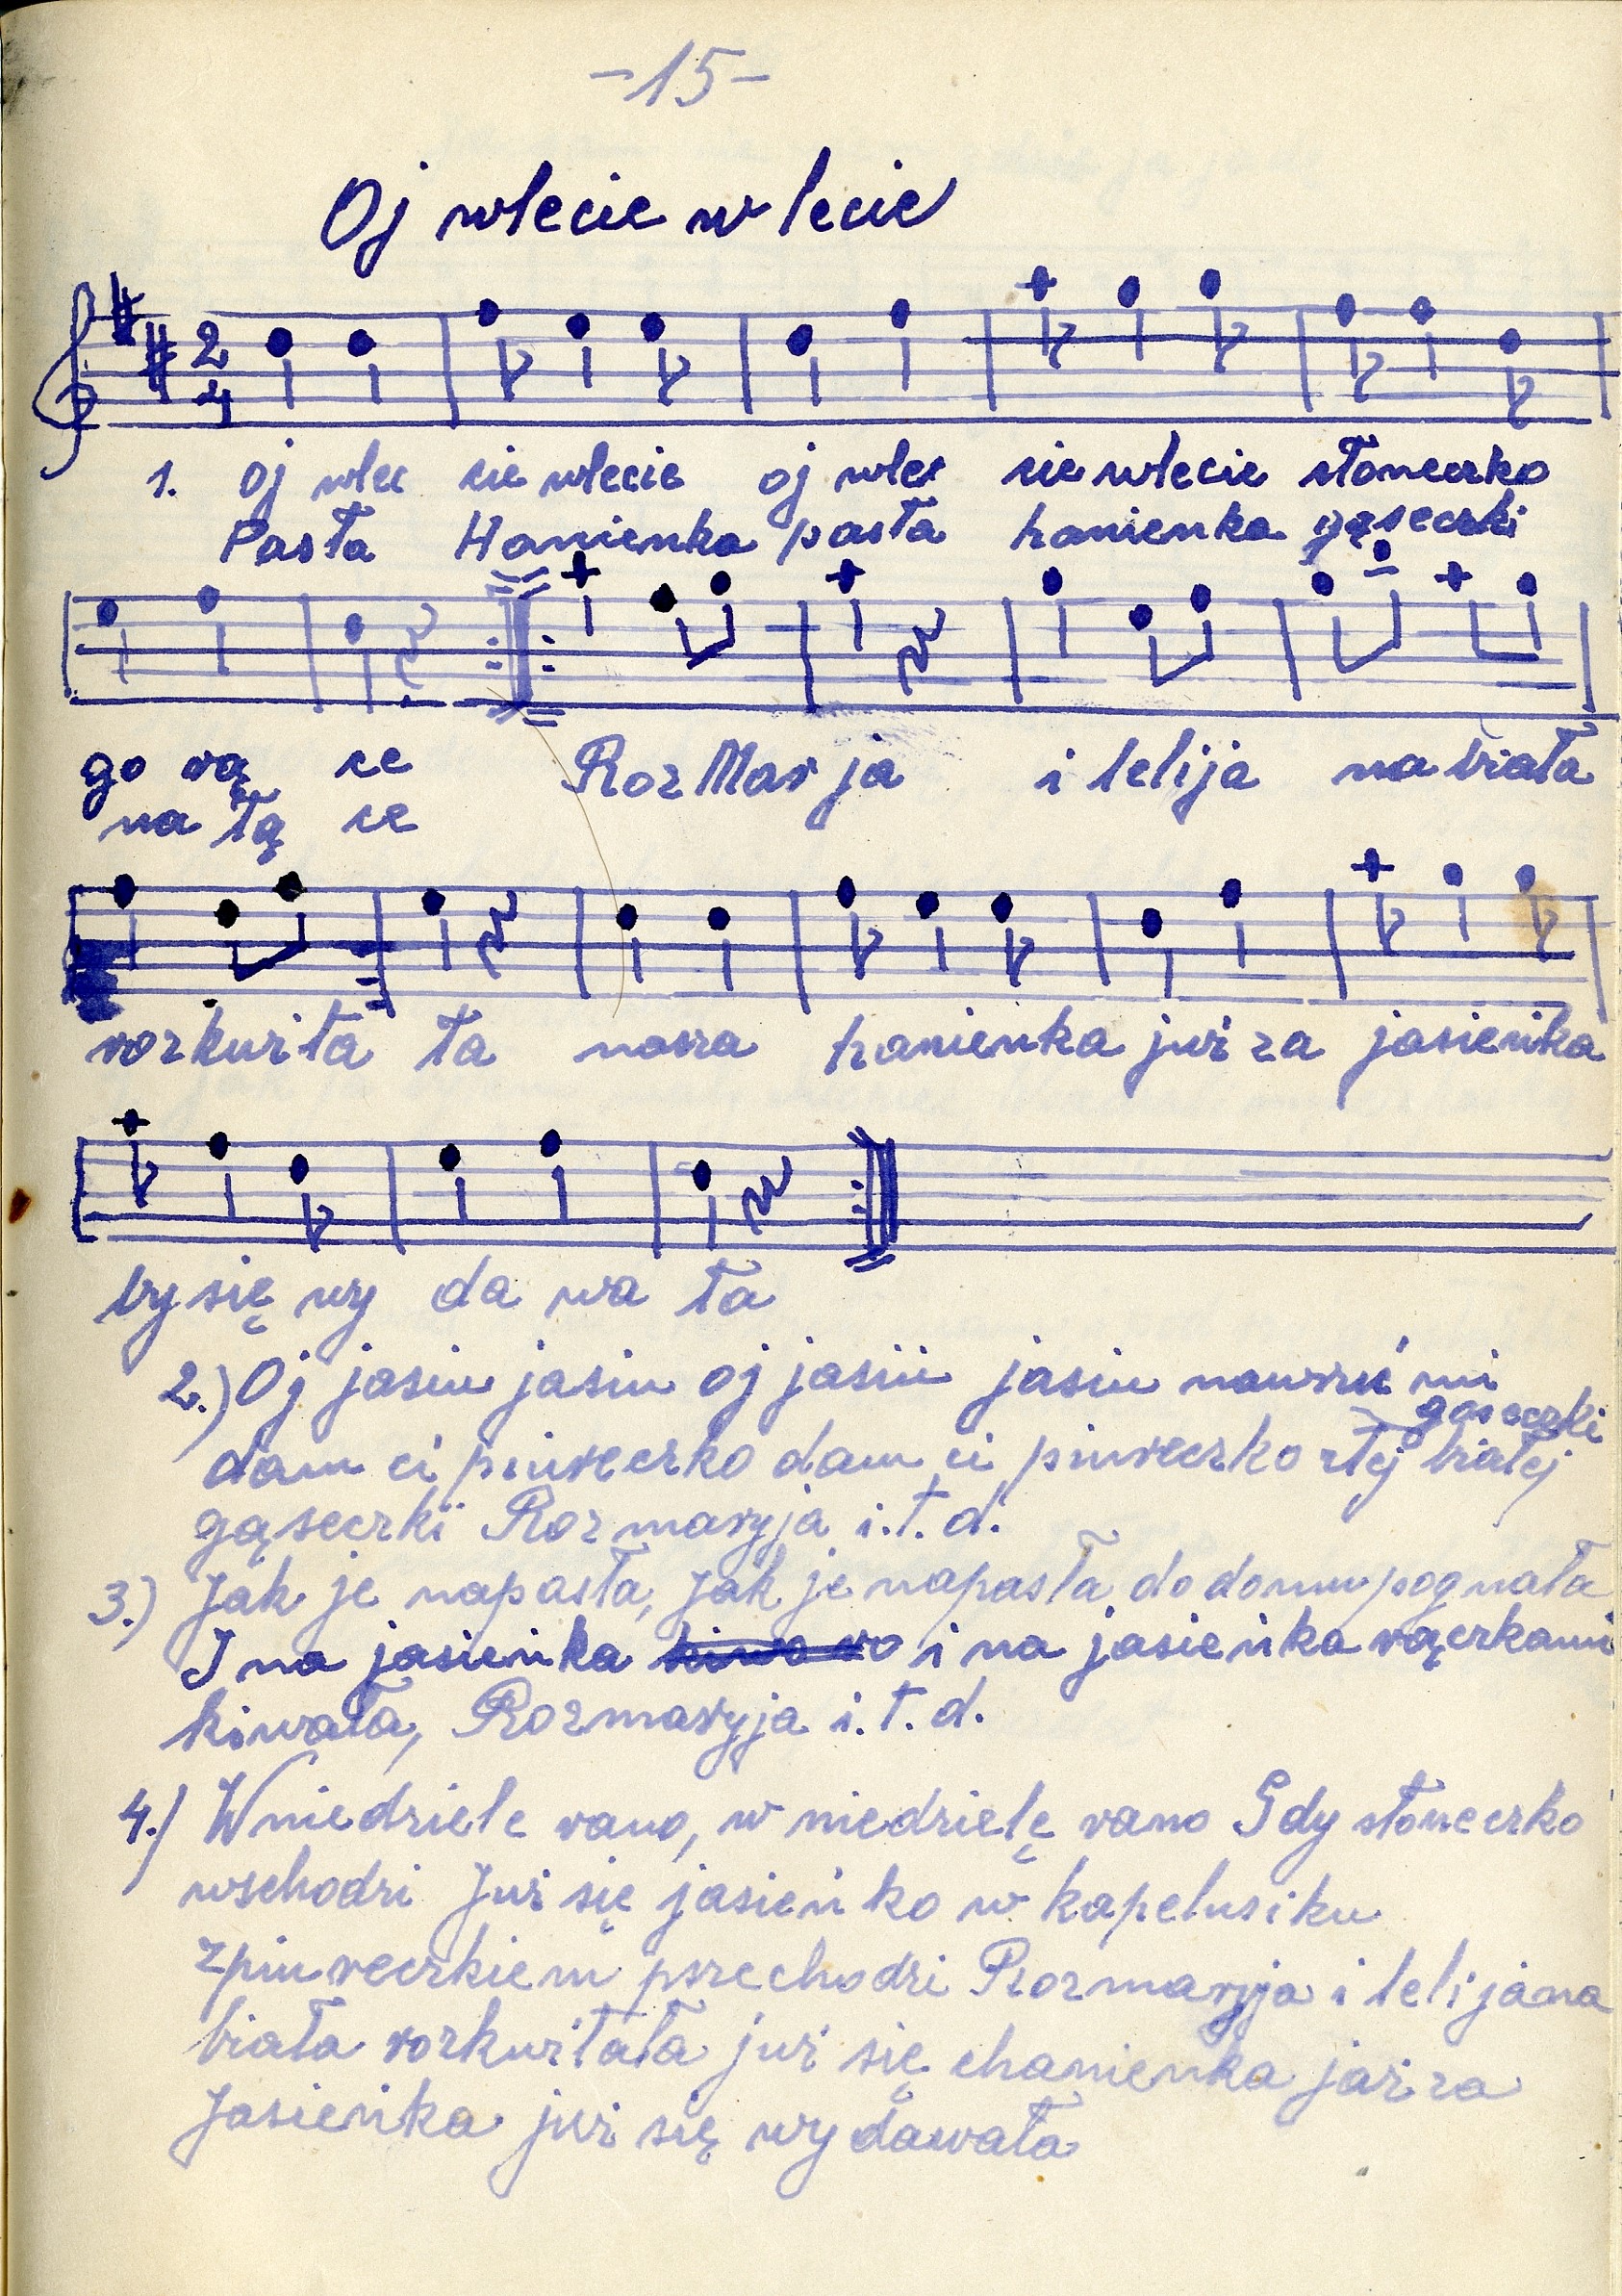 -15-
Oj wlecie w lecie
2
4
1. Oj wlec cie wlecie oj wlec cie wlecie słoneczko
Pasła Hanienka pasła hanienka gąseczki
go rą ce
na łą ce
RozMar ja i lelija na biała
rozkwita ła nasza hanienka już za jasieńka
by się wy da wa ła
2.) Oj jasiu jasiu oj jasiu jasiu nawruć mi
gąseczki
dam ci piureczko dam ci piureczko ztej białej
gąseczki Rozmaryja i.t.d.
3.) Jak je napasła, Jak je napasła do domu pognała
I na jasieńka i na jasieńka rączkami
kiwała, Rozmaryja i.t.d.
4.) Wniedziele rano, w niedzielę rano Gdy słoneczko
wschodzi Już się jasieńko w kapelusiku
zpiureczkiem przechodzi Rozmaryja i lelijana
biała rozkwitała już się chanienka jaż za
Jasieńka już się wydawała